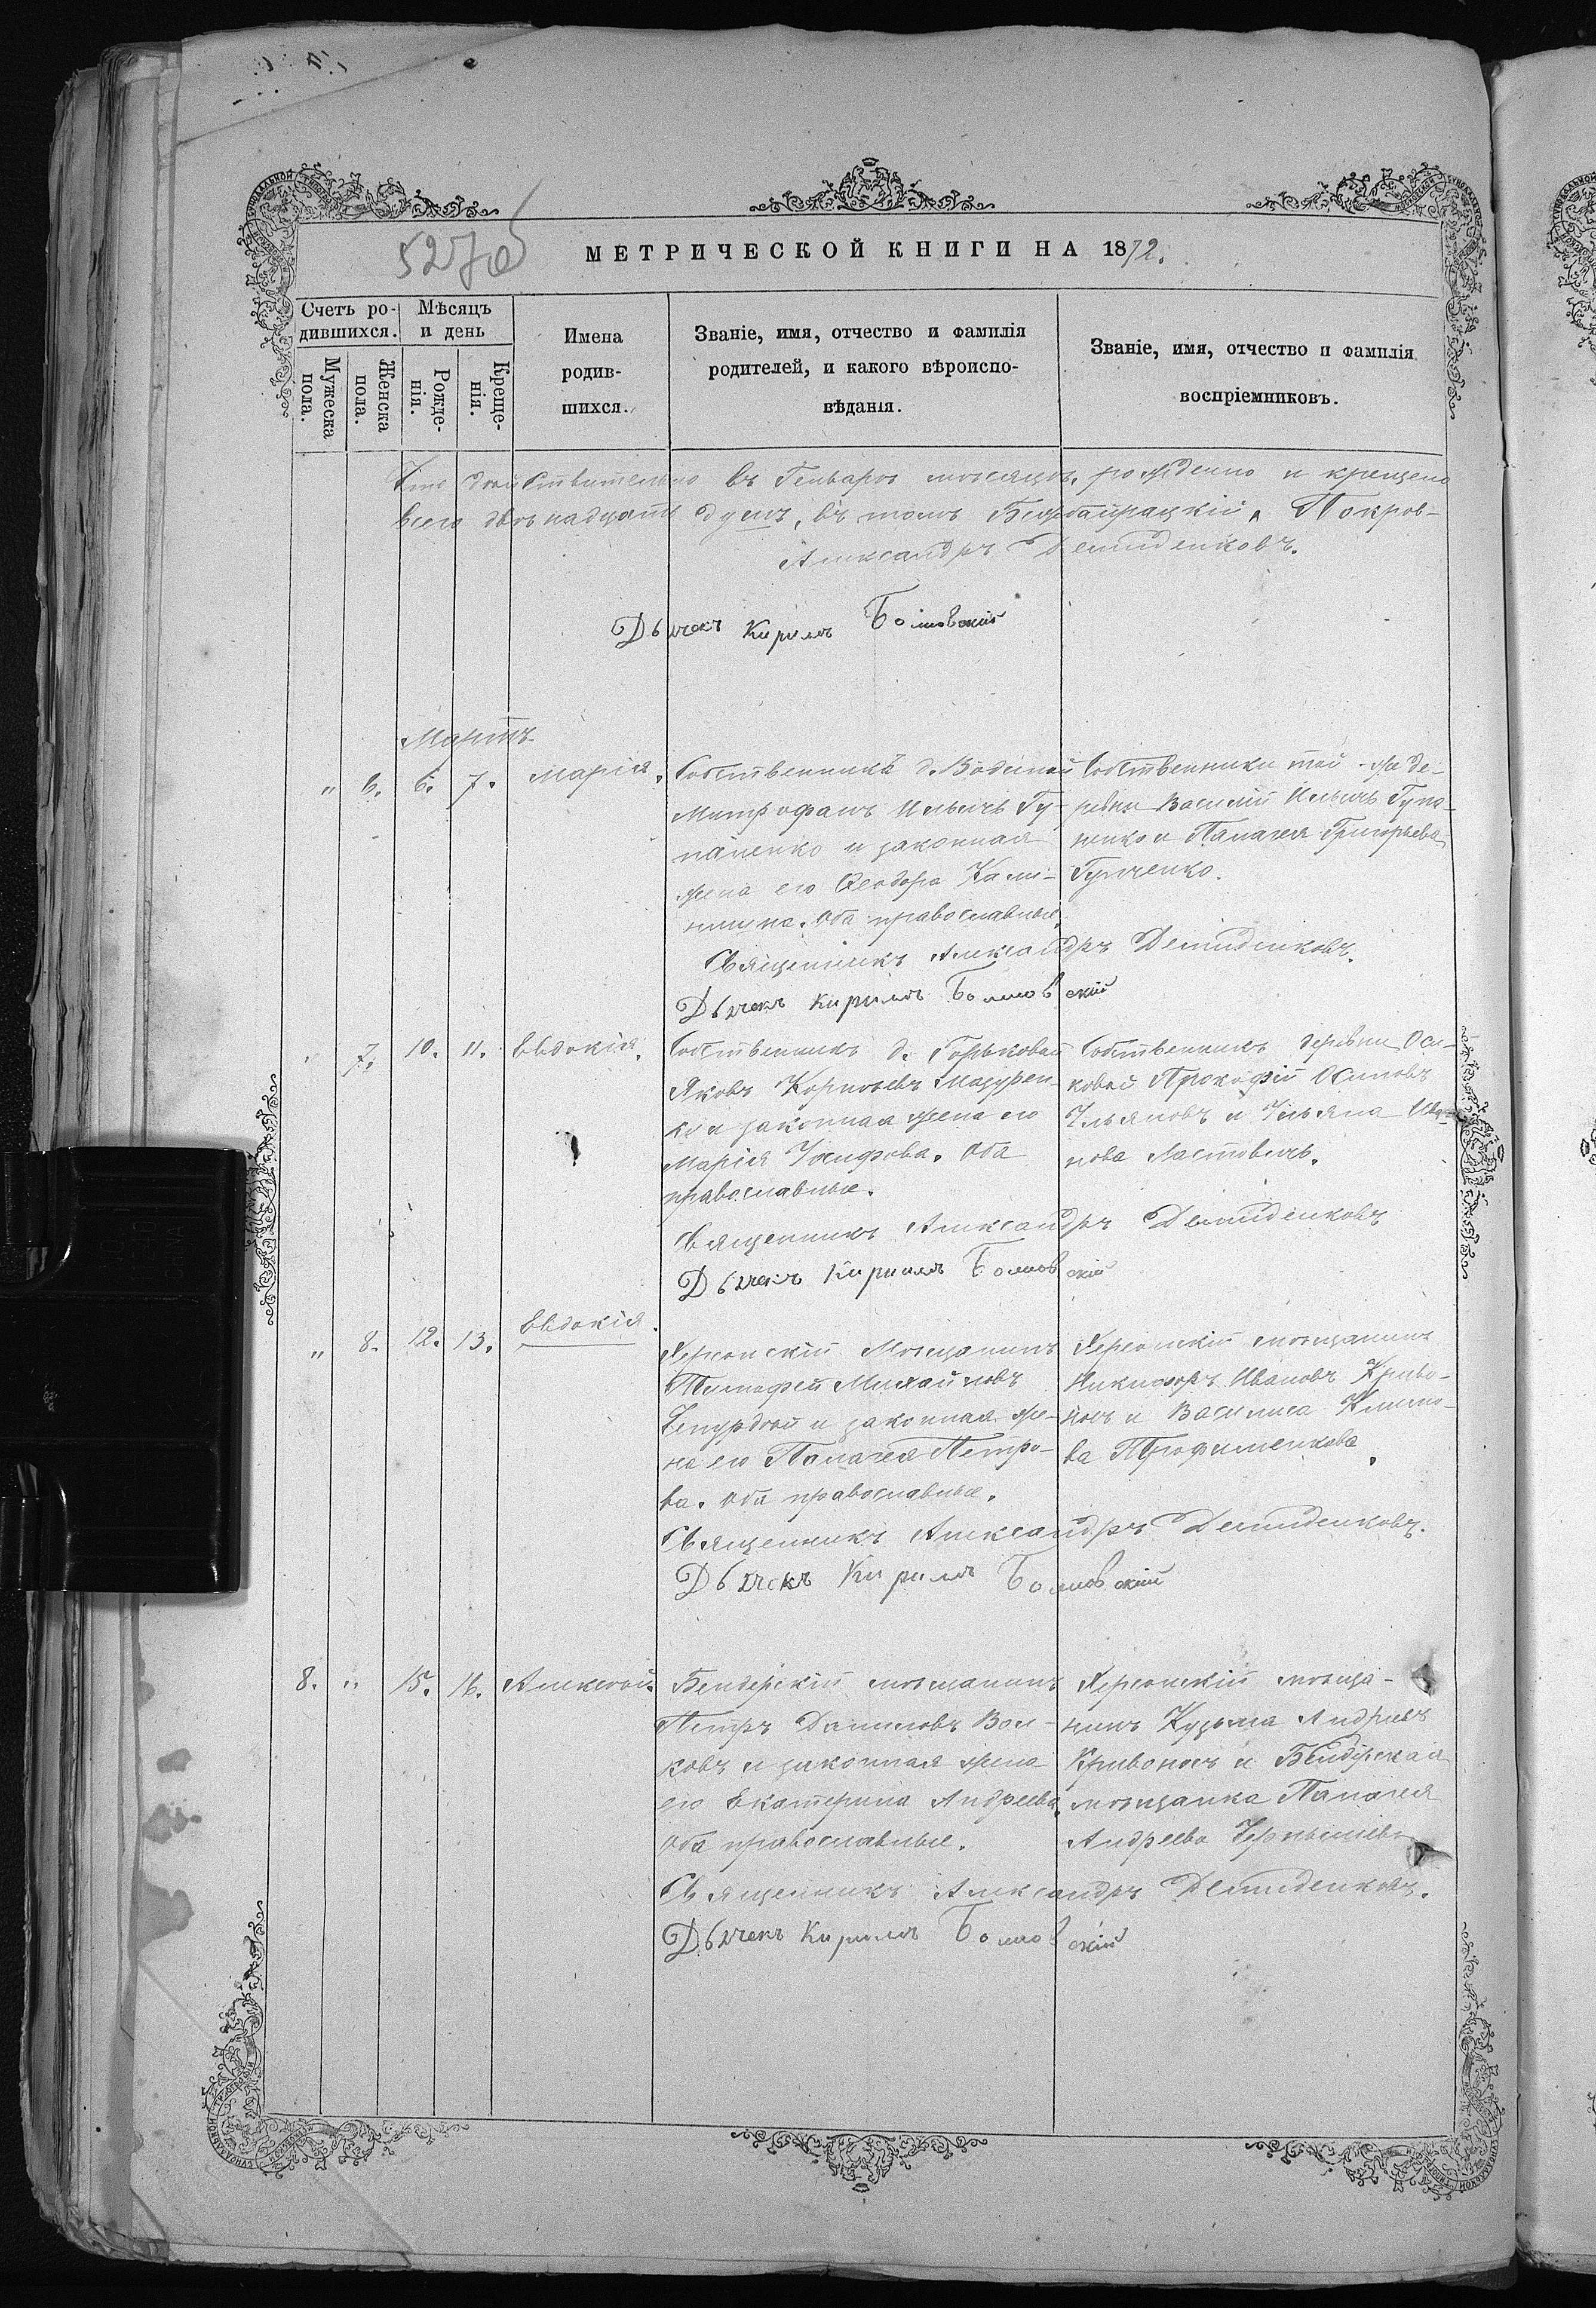 527об
МЕТРИЧЕСКОЙ КНИГИ НА 1872.
Счетъ ро-
дившихся.
Мѣсяцъ
и день
Мужеска
пола.
Женска
пола.
Рожде-
нія.
Креще-
нія.
Имена
родив-
шихся.
Званіе, имя, отчество и фамилія
родителей, и какого вѣроиспо-
вѣданія.
Званіе, имя, отчество и фамилія
воспріемниковъ.
Что дѣйствительно въ Генварѣ мѣсяцѣ рожденно и крещено
всего двѣнадцать душъ, въ томъ Покров-
Александръ Демиденковъ.
Дьячекъ Кирилъ
Мартъ
" 6. 6. 7. Марія.
Собственникъ д. Водяной
Митрофанъ Ильичъ Гу-
паленко и законная
жена его Ѳеодора Кали-
нина. Оба православные.
Собственники той же де-
ревни Василій Ильичъ Гупа-
ленко и Палагея Григорьева
Гупченко.
Священникъ Александръ Демиденковъ.
Дьячекъ Кирилъ
" 7. 10. 11. Евдокія.
Собственникъ д. Горьковой
Яковъ Корнѣевъ Мазурен-
ко и законная жена его
Марія Іосифова. Оба
православные.
Собственникъ деревни Оси-
ковой Прокофій Осиповъ
Ульяновъ и Ульяна Ива-
нова Ластовичъ.
Священникъ Александръ Демиденковъ
Дьячекъ Кирилъ
" 8. 12. 13. Евдокія.
Херсонскій Мѣщанинъ
Тимофей Михайловъ
и законная же-
на его Палагея Петро-
ва. Оба православные.
Херсонскій мѣщанинъ
Никифоръ Ивановъ Криво-
носъ и Василиса Климо-
ва Трофименкова.
Священникъ Александръ Демиденковъ.
Дьячекъ Кирилъ
8. " 15. 16. Алексѣй.
Бендерскій мѣщанинъ
Петръ Даниловъ Вол-
ковъ и законная жена
его Екатерина Андреева.
Оба православные.
Херсонскій мѣща-
нинъ Кузьма Андреевъ
Кривоносъ и Бендерская
мѣщанка Палагея
Андреева Чернышева
Священникъ Александръ Демиденковъ.
Дьячекъ Кирилъ